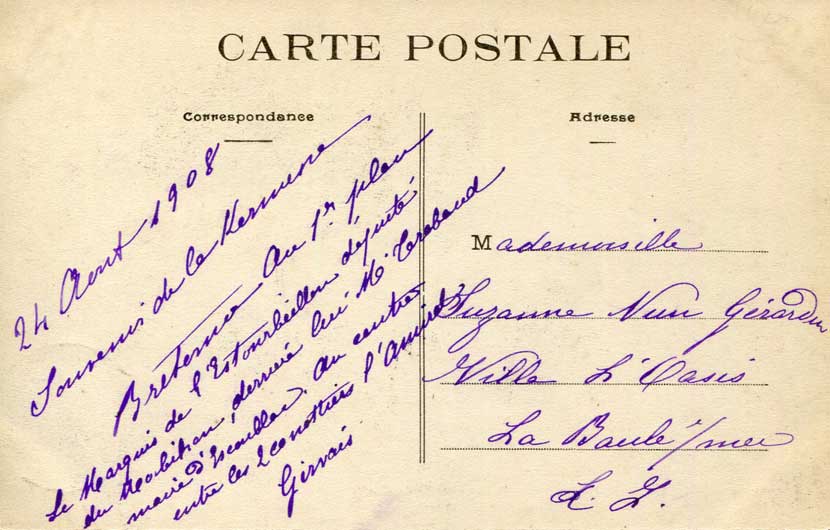 CARTE POSTALE
Correspondance
24 Aout 1908
Souvenir de la Kermesse
Bretonne Au 1er plan
Le Marquis de l'Estourbeillon député
du Morbihan, derrière lui Mr
maire d'Escoublac, au centre
entre les 2 l'Amiral
Gervais
Adresse
Mademoiselle
Suzanne Gérardin
Villa L'Oasis
La Baule s/mer
L. I.